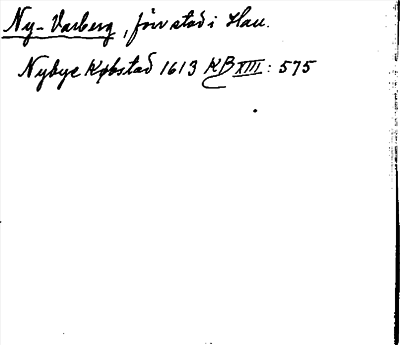 Ny-Varberg, förr stad i Hall.
Nybye Købstad 1613 KB XIII: 575